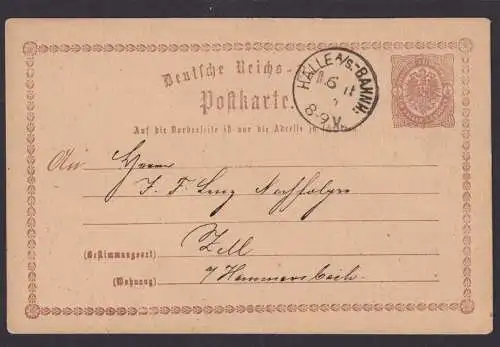 Deutsche Reichs-
Postkarte.
HALLE A/S.-BAHNH.
6 11
8-9 V.
Auf die Vorderseite ist nur die Adresse zu
An Herren
J. F. Lenz Nachfolger
(Bestimmungsort) Zell
(Wohnung) a/Hammersbach.